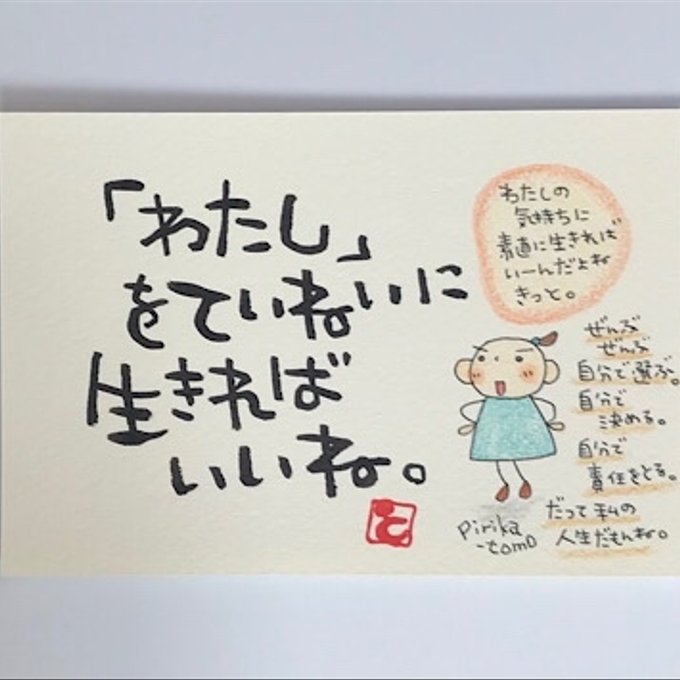 「わたし」
をていねいに
生きれば
いいね。
と
わたしの
気持ちに
素直に生きれば
いーんだよね
きっと。
ぜんぶ
ぜんぶ
自分で選ぶ。
自分で
決める。
自分で
責任をとる。
だって私の
人生だもんね。
Pirika
-tomo